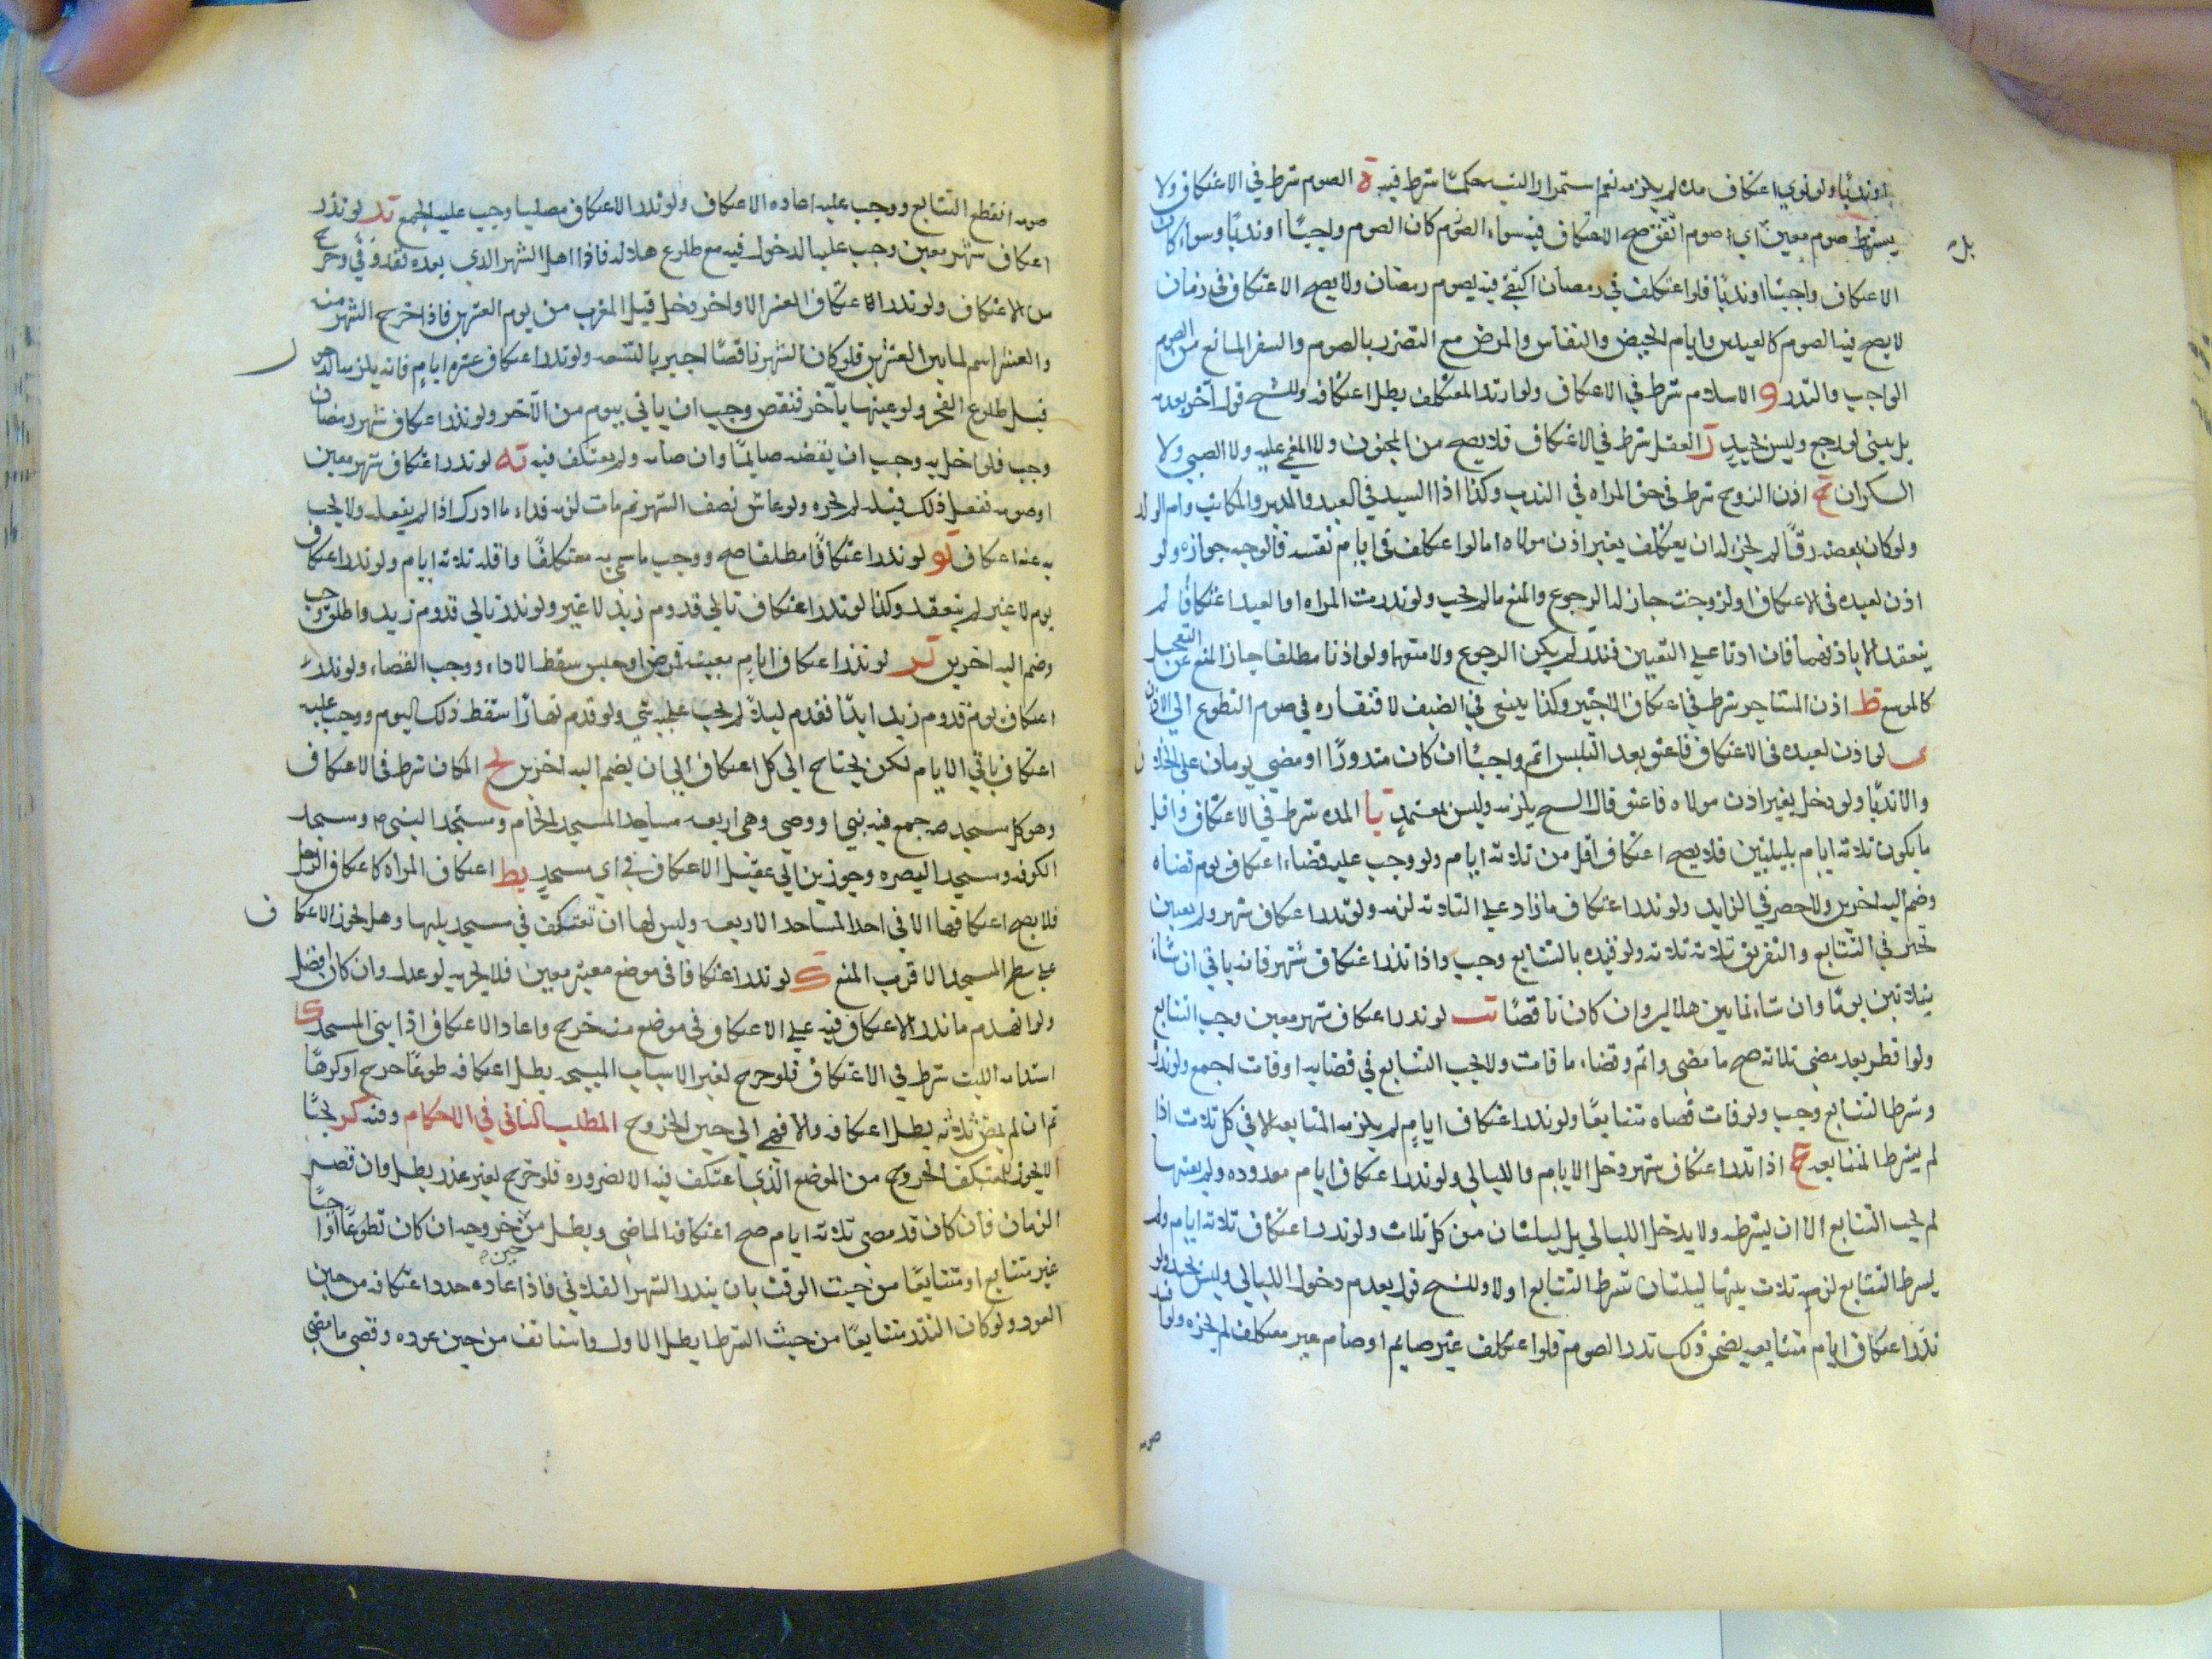 او ندبًا ولو نوي اعتكاف مده لم يلزمه نعم استمرار النيه حكمًا شرط فيه ة الصوم شرط في الاعتكاف ولا
يشترط صوم معين اي صوم اتفق صح الاعتكاف فيه سواء الصوم كان الصوم واجبًا او ندبًا وسواء كان
بل
الاعتكاف واجبًا او ندبًا فلو اعتكف في رمضان اكتفي فيه بصوم رمضان ولا يصح الاعتكاف في زمان
لا يصح فيه الصوم كالعيدين وايام الحيض والنفاس والمرض مع التضرر بالصوم والسفر المانع من الصوم
الواجب والندر و الاسلام شرط في الاعتكاف ولو ارتد المعتكف بطل اعتكافه وللشيخ قول آخر بعدمه
بل يبني لو رجع وليس بجيد ز العقل شرط في الاعتكاف فلا يصح من المجنون ولا المغمي عليه ولا الصبي ولا
السكران ح اذن الزوج شرط في حق المراه في الندب وكذا اذا السيد في العبد والمدبر والمكاتب وام الولد
ولو كان بعضه رقًا لم يجز له ان يعتكف بغير اذن مولاه اما لو اعتكف في ايام نفسه فالوجه جوازه ولو
اذن لعبده في الاعتكاف او لزوجته جاز له الرجوع والمنع ما لم يجب ولو نذرت المراه او العبد اعتكافًا لم
ينعقد الا باذنهما فان اذنا علي التعيين فنذر لم يكن الرجوع ولا منعهما ولو اذنا مطلقا جاز المنع عن التعجيل
كالموسع ط اذن المستاجر شرط في اعتكاف الاجير وكذا ينبغي في الضيف لافتقاره في صوم التطوع الي الاذن
ى لو اذن لعبده في الاعتكاف فاعتق بعد التلبس اتم واجبًا ان كان منذورًا او مضي يومان علي الخلاف
والا ندبًا ولو دخل بغير اذن مولاه فاعتق قال الشيخ يلزمه وليس بمعتمد يا المده شرط في الاعتكاف واقل
ما يكون ثلاثه ايام بليلتين فلا يصح اعتكاف اقل من ثلاثه ايام ولو وجب عليه قضاء اعتكاف يوم قضاه
وضم اليه اخرين ولا حصر في الزايد ولو نذر اعتكاف ما زاد علي الثلاثه لزمه ولو نذر اعتكاف شهر ولم يعين
تخير في التتابع والتفريق ثلاثه ثلاثه ولو قيده بالتتابع وجب واذا نذر اعتكاف شهر فانه ياتي ان شاء
بثلاثين يومًا وان شاء بما بين هلالين وان كان ناقصًا يب لو نذر اعتكاف شهر معين وجب التتابع
ولو افطر بعد مضي ثلاثه صح ما مضي واتم وقضاء ما فات ولا يجب التتابع في قضايه او فات اجمع ولو نذر
وشرط التتابع وجب ولو فات قضاه متتابعًا ولو نذر اعتكاف ايام لم يلزمه المتابعه الا في كل ثلاث اذا
لم يشترط المتابعه يج اذا نذر اعتكاف شهر دخل الايام والليالي ولو نذر اعتكاف ايام معدوده ولم يعينها
لم يجب التتابع الا ان يشترطه ولا يدخل الليالي بل ليلتان من كل ثلاث ولو نذر اعتكاف ثلاثه ايام ولم
يشرط التتابع لزمه ثلاث بينها ليلتان شرط التتابع اولا وللشيخ قول بعدم دخول الليالي وليس بجيد ولو
نذر اعتكاف ايام متتابعه يضمن ذلك نذر الصوم فلو اعتكف غير صايم او صام غير معتكف لم يجزه ولو افسد
صومه
صومه انقطع التتابع ووجب عليه اعاده الاعتكاف ولو نذر الاعتكاف مصليا وجب عليه الجمع يد لو نذر
اعتكاف شهر معين وجب عليه الدخول فيه مع طلوع هلاله فاذا اهل الشهر الذي بعده فقد وفي وخرج
من الاعتكاف ولو نذر الاعتكاف العشر الاواخر دخل قبل المغرب من يوم العشرين فاذا خرج الشهر منه
والعشر اسم لما بين العشرين فلو كان الشهر ناقصًا اجير بالتسعه ولو نذر اعتكاف عشره ايام فانه يلزمه الدخول
قبل طلوع الفجر ولو عينها بآخر فنقص وجب ان ياتي بيوم من الآخر ولو نذر اعتكاف شهر رمضان
وجب فلو اخل به وجب ان يقضه صايمًا وان صامه ولم يعتكف فيه يه لو نذر اعتكاف شهر معين
او صومه ففعل ذلك قبله لم يجزه ولو عاش نصف الشهر ثم مات لزمه فداء ما ادرك اذا لم يفعله ولا يجب
به عنه اعتكاف يو لو نذر اعتكافًا مطلقا صح ووجب ما سمي به معتكفًا واقله ثلاثه ايام ولو نذر اعتكاف
يوم لا غير لم ينعقد وكذا لو نذر اعتكاف ثاني قدوم زيد لا غير ولو نذر ثاني قدوم زيد واطلق وجب
وضم اليه اخرين يز لو نذر اعتكاف ايام معينه فمرض او حبس سقط الاداء ووجب القضاء ولو نذر
اعتكاف يوم قدوم زيد ابدًا فقدم ليلاً لم يجب عليه شي ولو قدم نهارًا سقط ذلك اليوم ووجب عليه
اعتكاف باقي الايام لكن يحتاج الي كل اعتكاف الي ان يضم اليه اخرين يح المكان شرط في الاعتكاف
وهو كل مسجد جمع فيه نبي او وصي وهي اربعه مساجد المسجد الحرام ومسجد النبي ص ومسجد
الكوفه ومسجد البصره وجوز ابن ابي عقيل الاعتكاف في اي مسجد يط اعتكاف المراه كاعتكاف الرجل
فلا يصح اعتكافها الا في احد المساجد الاربعه وليس لها ان تعتكف في مسجد بيتها وهل يجوز الاعتكاف
علي سطح المسجد الاقرب المنع ك لو نذر اعتكافا في موضع معين فلا يجزيه لو عدل وان كان افضل
ولو انهدم ما نذر الاعتكاف فيه علي الاعتكاف في موضع منه خرج واعاد الاعتكاف اذا بني المسجد كا
استدامه اللبث شرط في الاعتكاف فلو خرج لغير الاسباب المبيحه بطل اعتكافه طوعًا خرج او كرهًا
ثم ان لم يمض ثلاثه بطل اعتكافه والا فهي الي حين الخروج المطلب الثاني في الاحكام وفيه كز بحثًا
ا لا يجوز للمعتكف الخروج من الموضع الذي اعتكف فيه الا لضروره فلو خرج لغير عذر بطل وان قصر
الزمان فان كان قد مضي ثلاثه ايام صح اعتكافه الماضي وبطل من حين خروجه ان كان تطوعًا او واجبًا
غير متتابع او متتابعًا من حيث الوقت بان ينذر الشهر الفلاني فاذا عاده جدد اعتكافه من حين
العود ولو كان النذر متتابعًا من حيث الشرط بطل الاول واستانف من حين عوده وقضي ما مضي